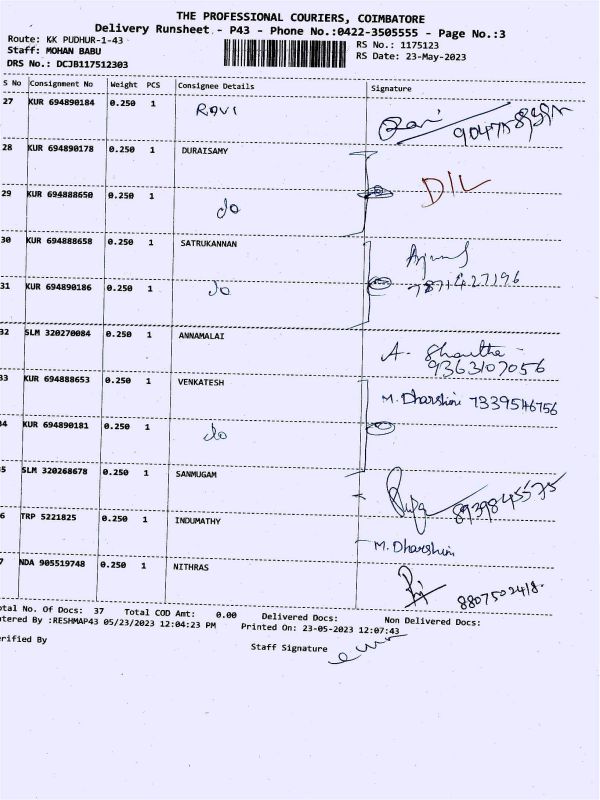 THE PROFESSIONAL COURIERS, COIMBATORE
Delivery Runsheet - P43 - Phone No.:0422-3505555 - Page No.:3
Route: KK PUDHUR-1-43
Staff: MOHAN BABU
DRS No.: DCJB117512303
RS No.: 1175123
RS Date: 23-May-2023
S No Consignment No Weight PCS Consignee Details Signature
27 KUR 694890184 0.250 1 Ravi Ravi
28 KUR 694890178 0.250 1 DURAISAMY
29 KUR 694888650 0.250 1 do D/L
30 KUR 694888658 0.250 1 SATRUKANNAN
31 KUR 694890186 0.250 1 do 7871427196
32 SLM 320270084 0.250 1 ANNAMALAI A.
9363107056
33 KUR 694888653 0.250 1 VENKATESH M. Dharshini 7339546756
34 KUR 694890181 0.250 1 do
5 SLM 320268678 0.250 1 SANMUGAM 8939845575
6 TRP 5221825 0.250 1 INDUMATHY M. Dharshini
7 NDA 905519748 0.250 1 NITHRAS 8807502418
otal No. Of Docs: 37 Total COD Amt: 0.00 Delivered Docs: Non Delivered Docs:
ntered By :RESHMAP43 05/23/2023 12:04:23 PM Printed On: 23-05-2023 12:07:43
erified By Staff Signature